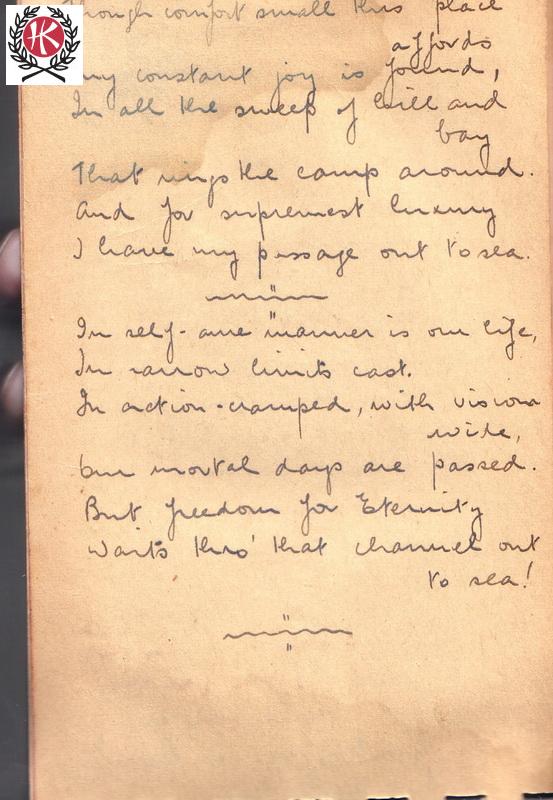 HK
though comfort small this place
affords
my constant joy is found,
In all the sweep of hill and
bay
that rings the camp around.
And for supremest luxury
I have my passage out to sea.
In self-ame manner is our life,
In narrow limits cast.
In action-cramped, with vision
wide,
Our mortal days are passed.
But freedom for Eternity
Waits thro' that channel out
to sea!